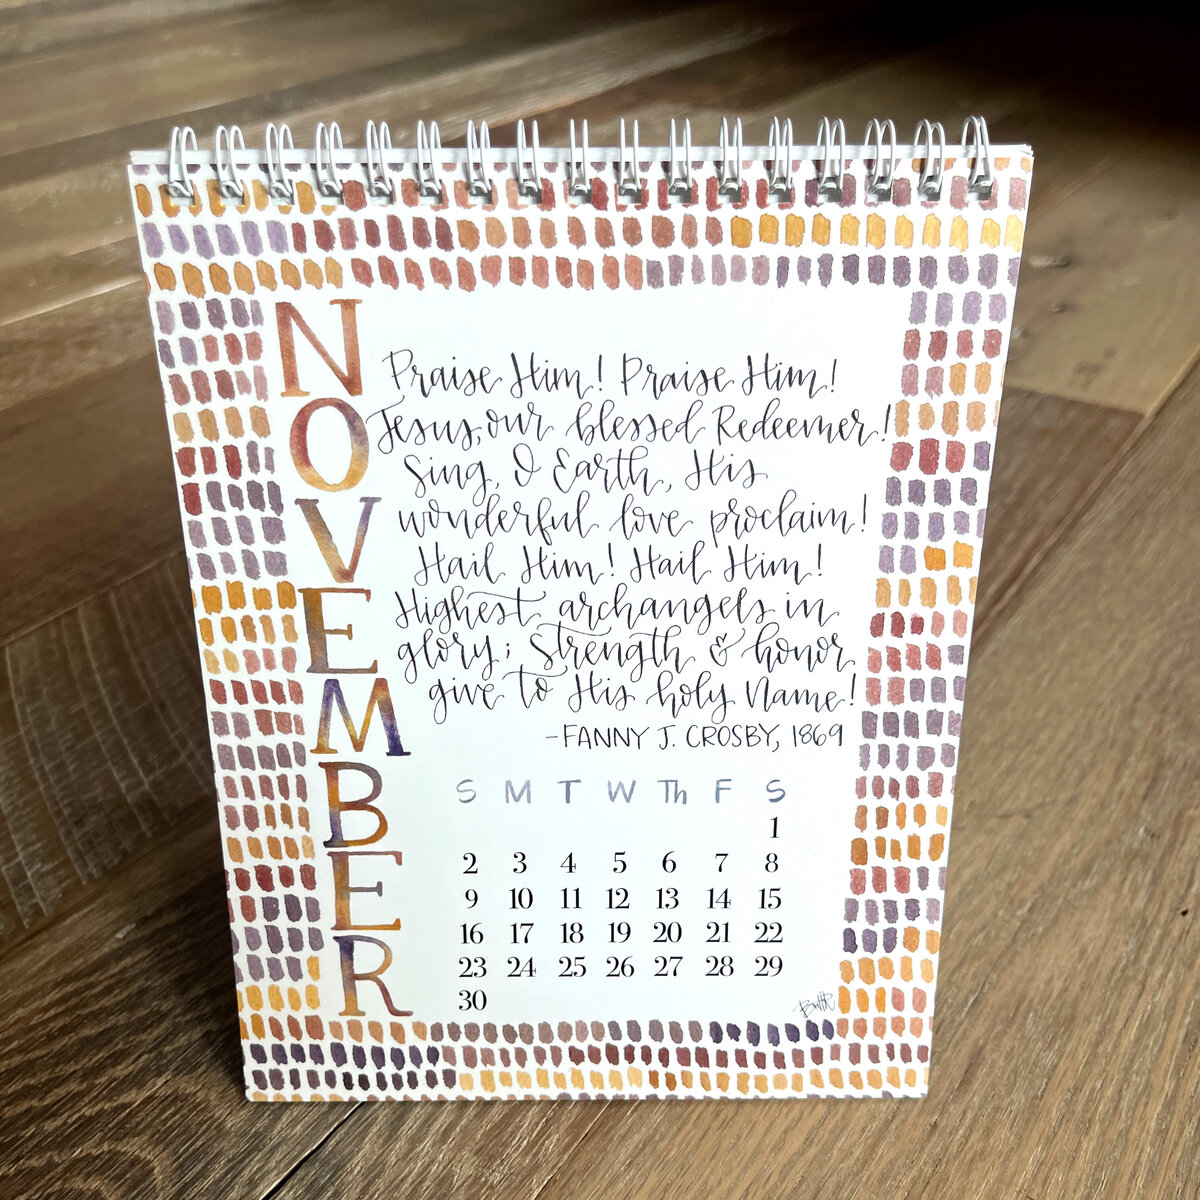 NOVEMBER
Praise Him! Praise Him!
Jesus, our blessed Redeemer!
Sing, O Earth, His
wonderful love proclaim!
Hail Him! Hail Him!
Highest archangels in
glory; Strength & honor
give to His holy Name!
-FANNY J. CROSBY, 1869
S M T W Th F S
1
2 3 4 5 6 7 8
9 10 11 12 13 14 15
16 17 18 19 20 21 22
23 24 25 26 27 28 29
30